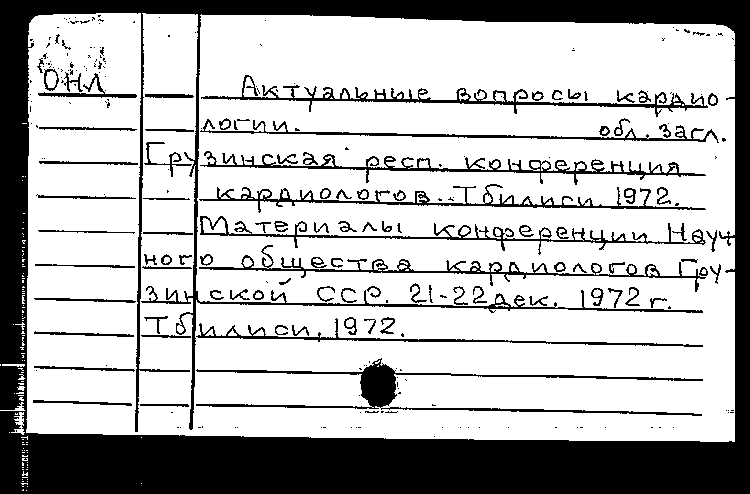 ОНЛ Актуальные вопросы кардио-
логии. обл. загл.
Грузинская респ. конференция
кардиологов. Тбилиси. 1972.
Материалы конференции Науч-
ного общества кардиологов Гру-
зинской ССР. 21-22 дек. 1972 г.
Тбилиси, 1972.